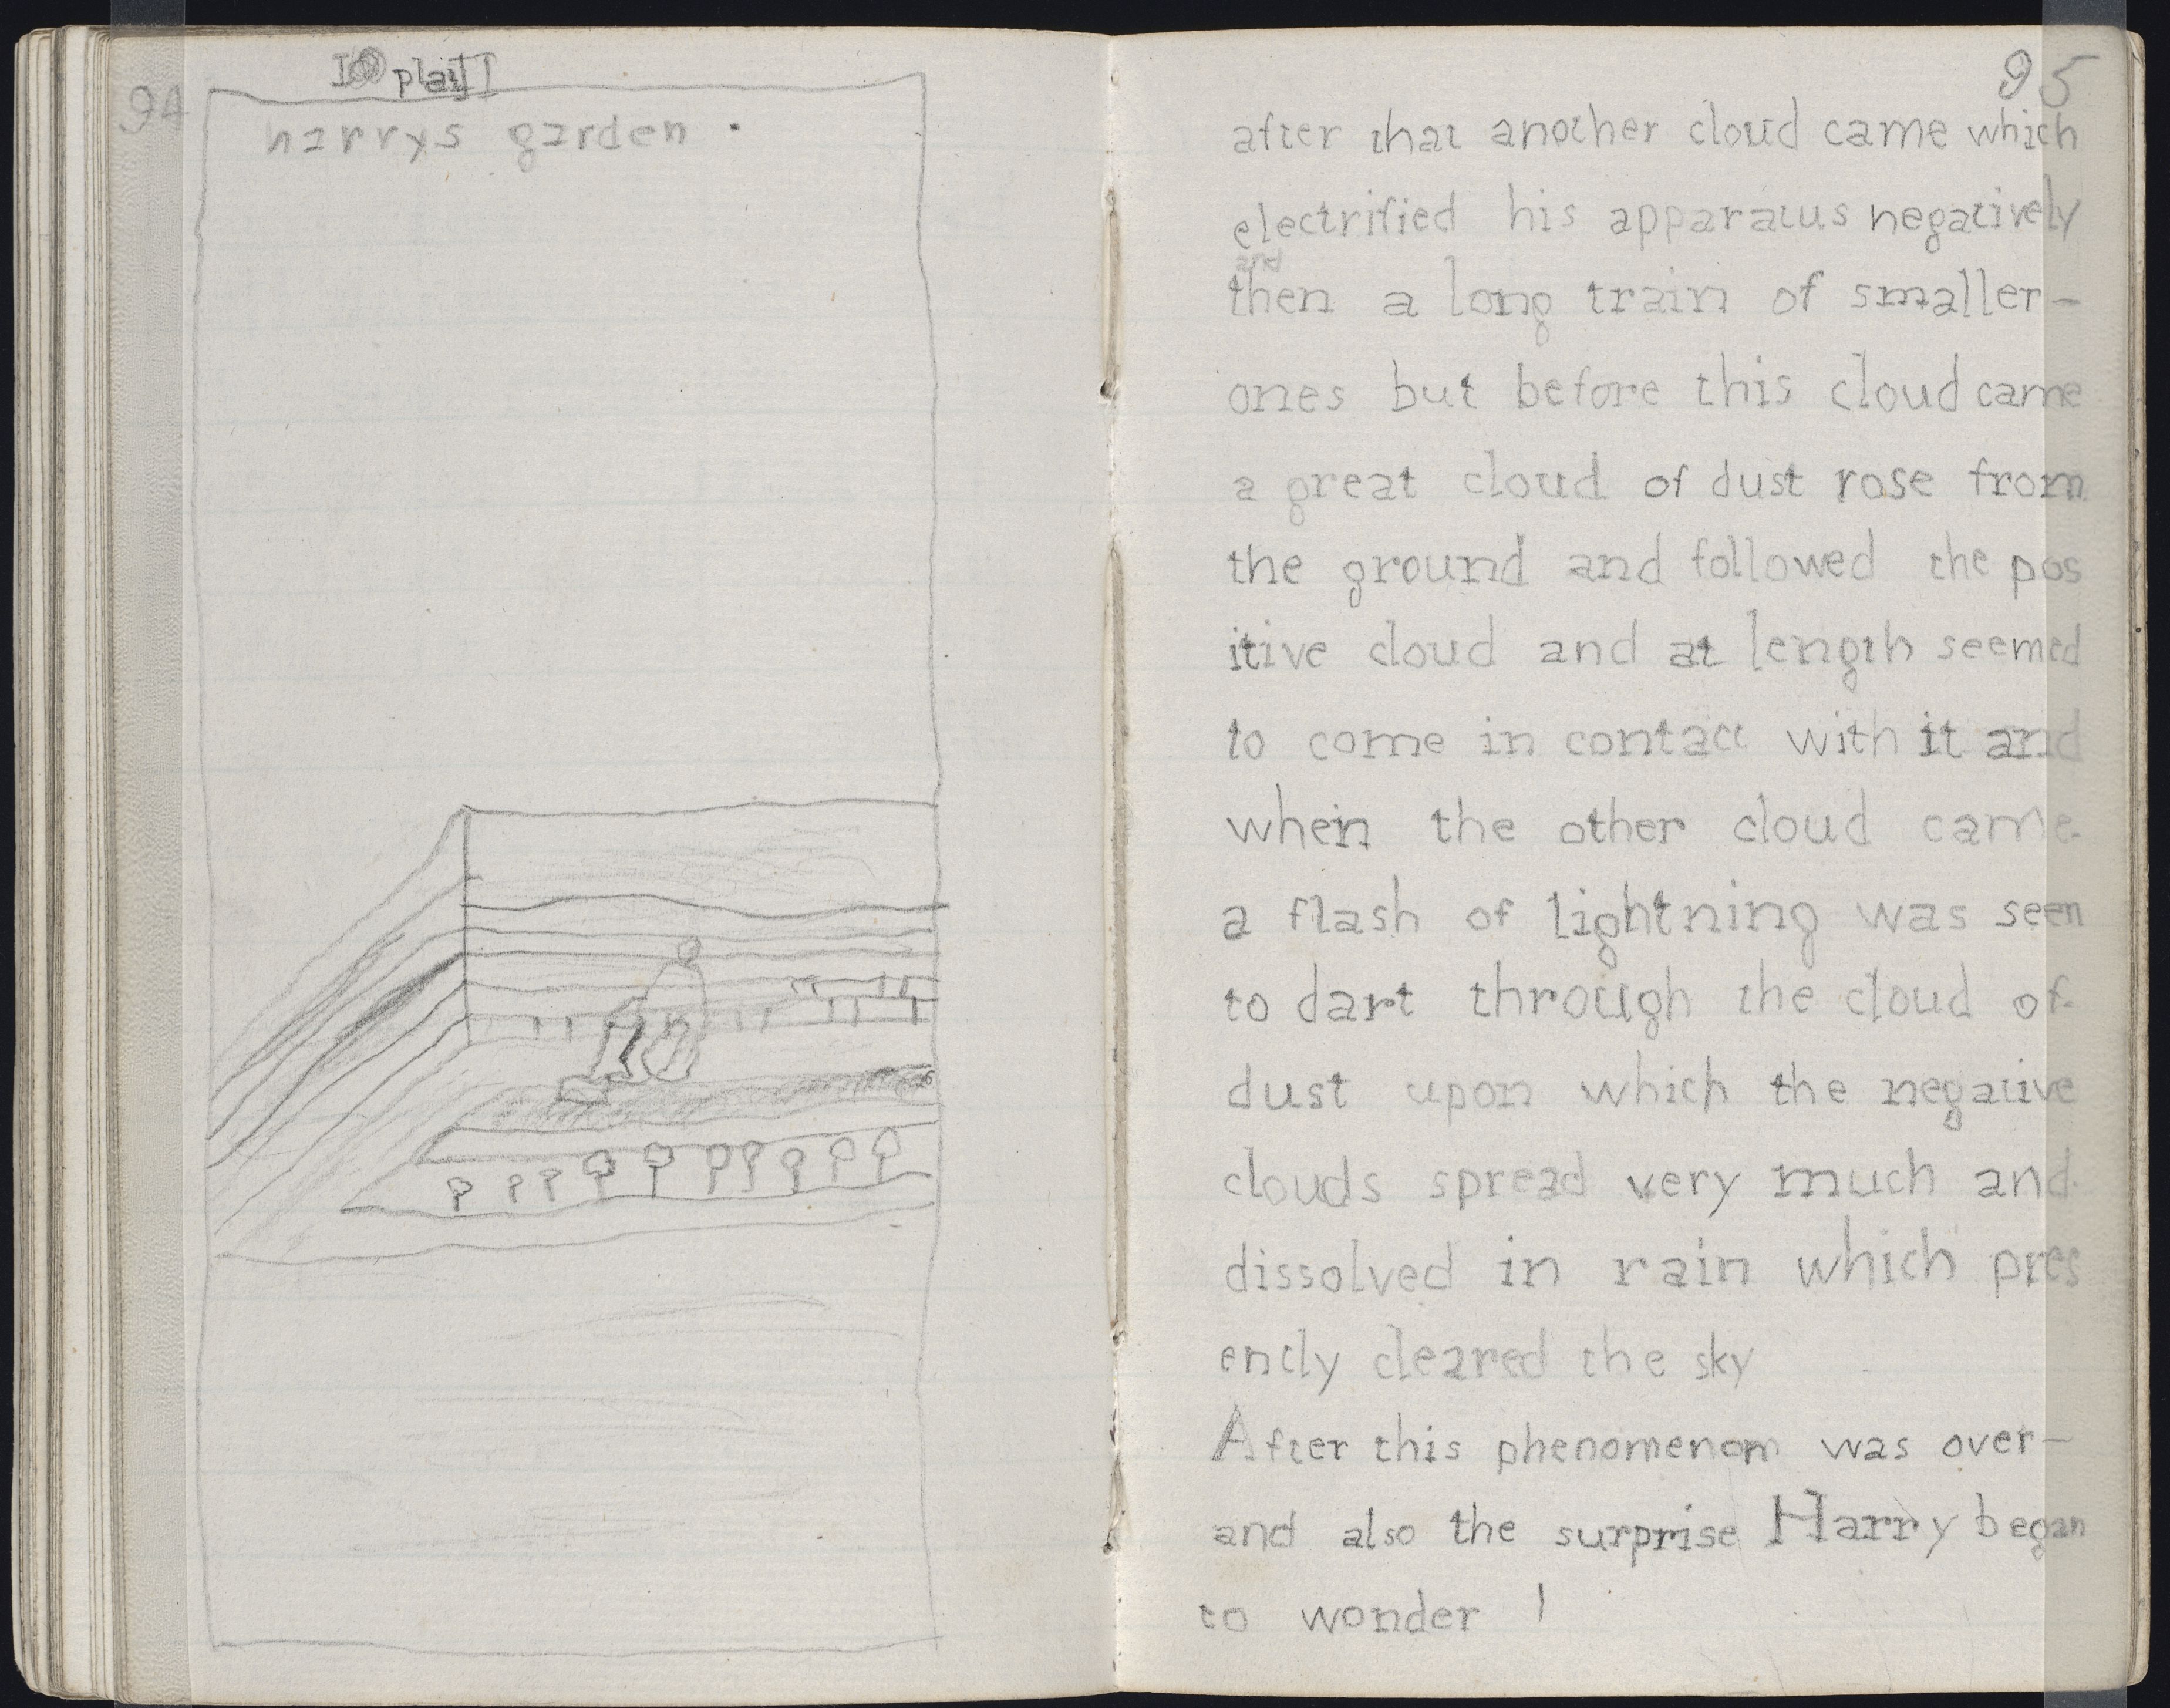 94
plat
harrys garden .
95
after that another cloud came which
electrified his apparatus negatively
and
then a long train of smaller-
ones but before this cloud came
a great cloud of dust rose from
the ground and followed the pos
itive cloud and at length seemed
to come in contact with it and
when the other cloud came
a flash of lightning was seen
to dart through the cloud of
dust upon which the negative
clouds spread very much and
dissolved in rain which pres
ently cleared the sky
After this phenomenom was over-
and also the surprise Harry began
to wonder !